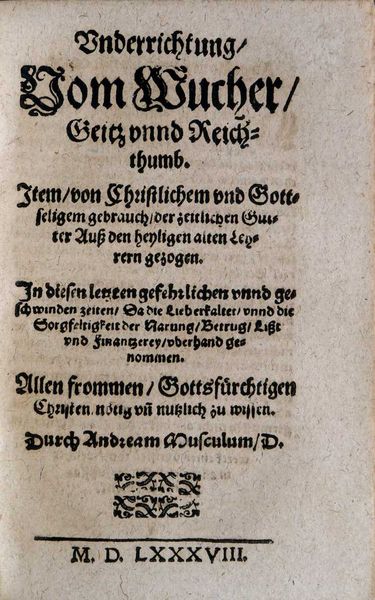 Vnderrichtung/
Vom Wucher/
Geitz vnnd Reich-
thumb.
Item/von Christlichem vnd Gott-
seligem gebrauch/der zeitlichen Guͤ-
ter Auß den heyligen alten Leh-
rern gezogen.
In diesen letzten gefehrlichen vnnd ge-
schwinden zeiten/ Da die Lieb erkaltet/ vnnd die
Sorgfeltigkeit der Narung/ Betrug/ List
vnd Finantzerey/ vberhand ge-
nommen.
Allen frommen/ Gottsfürchtigen
Christen, nötig vñ nutzlich zu wissen.
Durch Andream Musculum/D.
M. D. LXXXVIII.